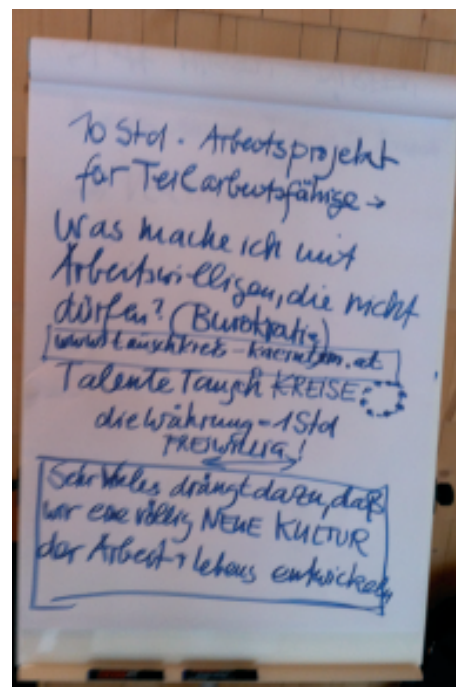 10 Std. Arbeitsprojekt
für Teilarbeitsfähige →
Was mache ich mit
Arbeitswilligen, die nicht
dürfen? (Bürokratie)
www.tauschkreis-kaernten.at
Talente Tausch KREISE
die Währung = 1 Std
FREIWILLIG!
Sehr Vieles drängt dazu, daß
wir eine völlig NEUE KULTUR
der Arbeit + lebens entwickeln